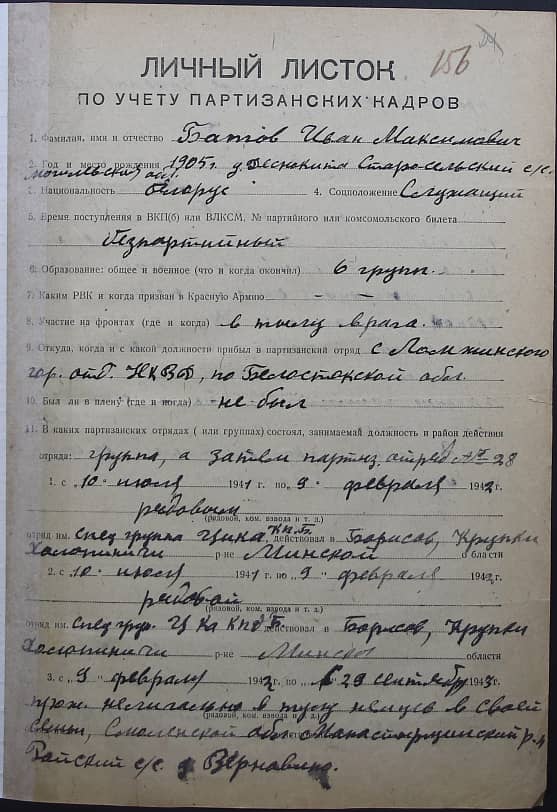 156
ЛИЧНЫЙ ЛИСТОК
ПО УЧЕТУ ПАРТИЗАНСКИХ КАДРОВ
1. Фамилия, имя и отчество Батов Иван Максимович
2. Год и место рождения 1905 г. д. Староселский с/с.
обл.
3. Национальность белорус 4. Соцположение Служащий
5. Время поступления в ВКП(б) или ВЛКСМ, № партийного или комсомольского билета
безпартийный
6. Образование: общее и военное (что и когда окончил) 6 групп.
7. Каким РВК и когда призван в Красную Армию — —
8. Участие на фронтах (где и когда) в тылу врага.
9. Откуда, когда и с какой должности прибыл в партизанский отряд с Ломжинского
гор. отд. НКВД, по Белостокской обл.
10. Был ли в плену (где и когда) не был
11. В каких партизанских отрядах (или группах) состоял, занимаемай должность и район действия
отряда: группа, а затем партиз. отряд № 28
1. с „10" июля 1941 г. по „9" февраля 1942 г.
рядовым
(рядовой, ком. взвода и т. д.)
отряд им. Спец группа ЦИКА КП.б.Б. действовал в Борисов, Крупки
Холопиничи р-не Минской области
2. с „10" июля 1941 г. по „9" февраля 1942 г.
рядовой
(рядовой, ком. взвода и т. д.)
отряд им. Спец груп. Ц Ка КП б Б действовал в Борисов, Крупки
Холопиничи р-не Минской области
3. с „9" февраля 1942 г. по „29 сентября 1943 г.
прож. нелегально в тылу немцев в своей
(рядовой, ком. взвода и т. д.)
семьи, Смоленской обл. Манастырщинский р-н
с/с. д